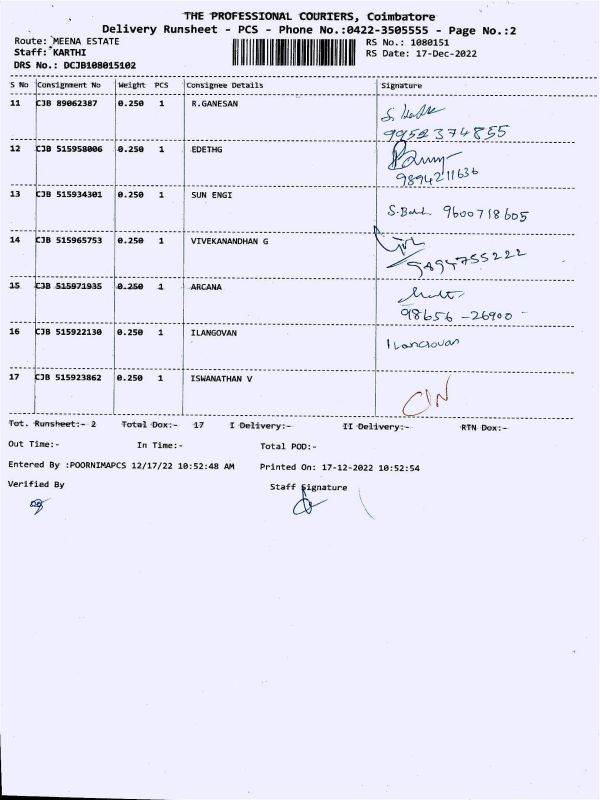 THE PROFESSIONAL COURIERS, Coimbatore
Delivery Runsheet - PCS - Phone No.:0422-3505555 - Page No.:2
Route: MEENA ESTATE RS No.: 1080151
Staff: KARTHI RS Date: 17-Dec-2022
DRS No.: DCJB108015102
S No Consignment No Weight PCS Consignee Details Signature
11 CJB 89062387 0.250 1 R.GANESAN
9952374855
12 CJB 515958006 0.250 1 EDETHG
9894211636
13 CJB 515934301 0.250 1 SUN ENGI
9600718605
14 CJB 515965753 0.250 1 VIVEKANANDHAN G
9894755222
15 CJB 515971935 0.250 1 ARCANA
98656-26900
16 CJB 515922130 0.250 1 ILANGOVAN
Ilangovan
17 CJB 515923862 0.250 1 ISWANATHAN V
C/N
Tot. Runsheet:- 2 Total Dox:- 17 I Delivery:- II Delivery:- RTN Dox:-
Out Time:- In Time:- Total POD:-
Entered By :POORNIMAPCS 12/17/22 10:52:48 AM Printed On: 17-12-2022 10:52:54
Verified By Staff Signature